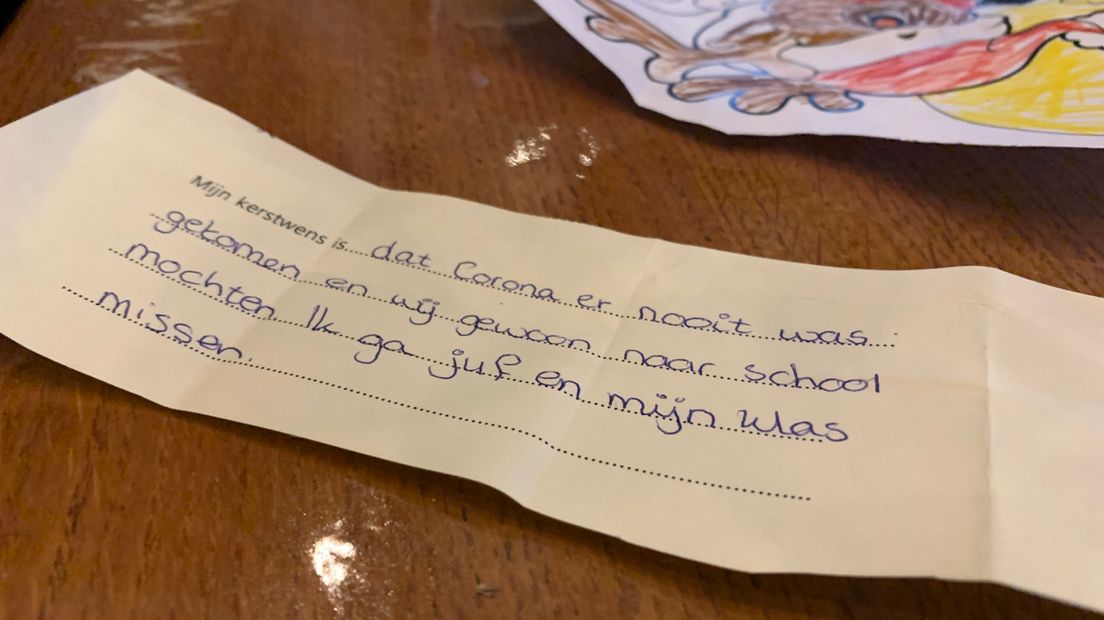 Mijn kerstwens is dat Corona er nooit was
gekomen en wij gewoon naar school
mochten Ik ga juf en mijn klas
missen.